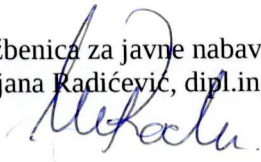 žbenica za javne nabav
jana Radićević, dipl.in